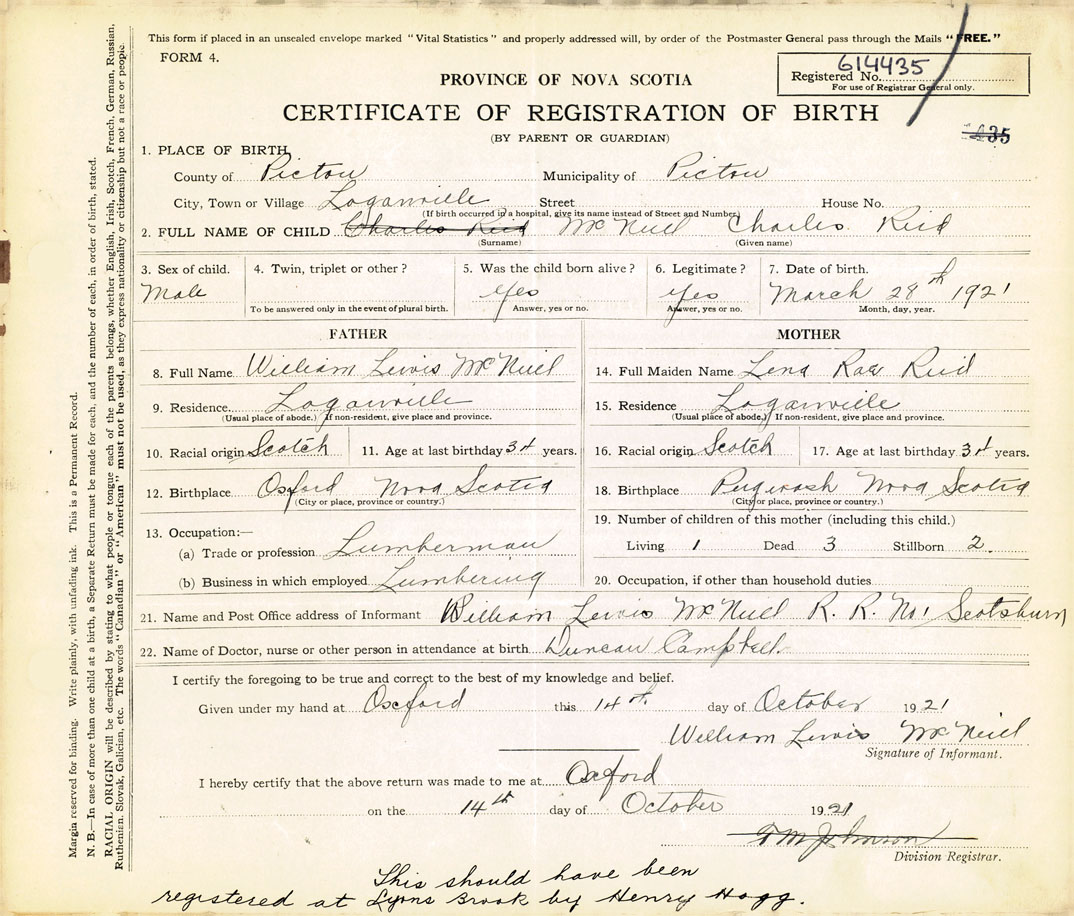 This form if placed in an unsealed envelope marked "Vital Statistics" and properly addressed will, by order of the Postmaster General pass through the Mails "FREE."
FORM 4.
614435
Registered No.
For use of Registrar General only.
PROVINCE OF NOVA SCOTIA
CERTIFICATE OF REGISTRATION OF BIRTH
435
(BY PARENT OR GUARDIAN)
1. PLACE OF BIRTH
County of Pictou Municipality of Pictou
City, Town or Village Loganville Street House No.
(If birth occurred in a hospital, give its name instead of Street and Number)
2. FULL NAME OF CHILD Charles Reid McNeill Charles Reid
(Surname) (Given name)
3. Sex of child. 4. Twin, triplet or other? 5. Was the child born alive? 6. Legitimate? 7. Date of birth.
Male Yes Yes March 28th 1921
To be answered only in the event of plural birth. Answer, yes or no. Answer, yes or no. Month, day, year.
FATHER MOTHER
8. Full Name William Lewis McNeill 14. Full Maiden Name Lena Rae Reid
9. Residence Loganville 15. Residence Loganville
(Usual place of abode.) If non-resident, give place and province. (Usual place of abode.) If non-resident, give place and province.
10. Racial origin Scotch 11. Age at last birthday 34 years. 16. Racial origin Scotch 17. Age at last birthday 34 years.
12. Birthplace Oxford Nova Scotia 18. Birthplace Pugwash Nova Scotia
(City or place, province or country.) (City or place, province or country.)
13. Occupation:— 19. Number of children of this mother (including this child.)
(a) Trade or profession Lumberman Living 1 Dead 3 Stillborn 2
(b) Business in which employed Lumbering 20. Occupation, if other than household duties
21. Name and Post Office address of Informant William Lewis McNeill R. R. No 1 Scotsburn
22. Name of Doctor, nurse or other person in attendance at birth Duncan Campbell
I certify the foregoing to be true and correct to the best of my knowledge and belief.
Given under my hand at Oxford this 14th day of October 1921
William Lewis McNeill
Signature of Informant.
I hereby certify that the above return was made to me at Oxford
on the 14th day of October 1921
Johnson
Division Registrar.
This should have been
registered at Lyons Brook by Henry Hogg.
Margin reserved for binding. Write plainly, with unfading ink. This is a Permanent Record.
N. B.—In case of more than one child at a birth, a Separate Return must be made for each, and the number of each, in order of birth, stated.
RACIAL ORIGIN will be described by stating to what people or tongue each of the parents belongs, whether English, Irish, Scotch, French, German, Russian,
Ruthenian, Slovak, Galician, etc. The words "Canadian" or "American" must not be used, as they express nationality or citizenship but not a race or people.